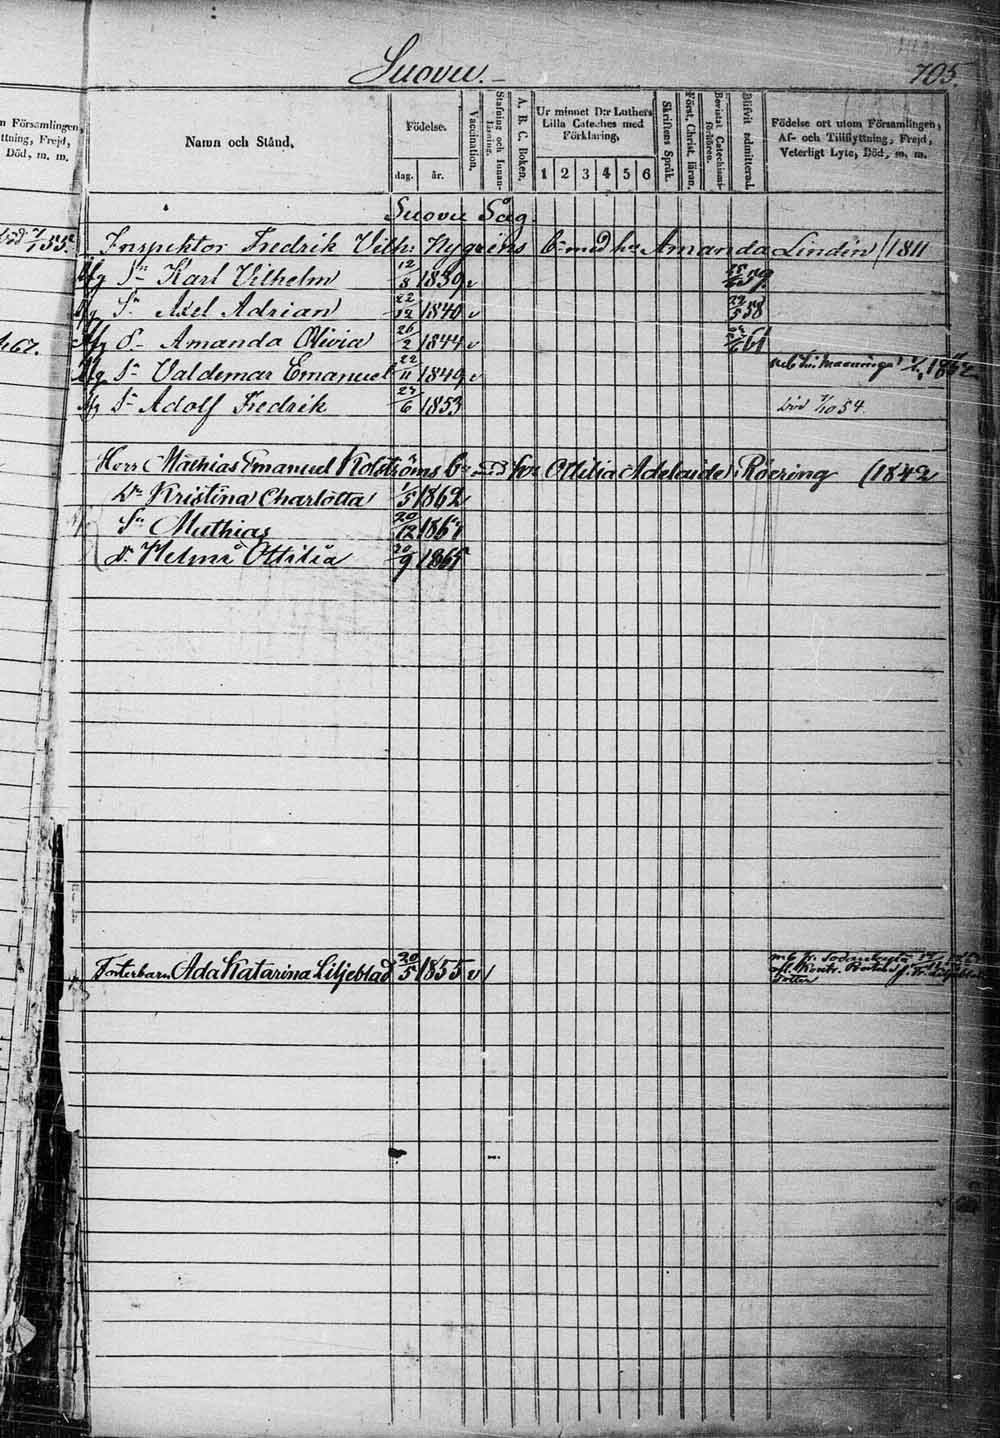 Suovu.
705.
n Församlingen,
ttning, Frejd,
Död, m. m.
Namn och Stånd,
Födelse.
dag.
år.
Vaccination.
Stafning och Innan-
läsning.
A. B. C. Boken.
Ur minnet D:r Luthers
Lilla Cateches med
Förklaring,
1 2 3 4 5 6
Skriftens Språk.
Först. Christ. läran.
Bevistat Catechismi-
förhören.
Blifvit admitterad.
Födelse ort utom Församlingen,
Af- och Tillflyttning, Frejd,
Veterligt Lyte, Död, m. m.
Suovu Såg.
Inspektor Fredrik Vilh: Nygréns b: med hu Amanda Lindén /1811
Sn Karl Vilhelm 12/8 1839 v
Sn Axel Adrian 22/12 1840 v 22/5 58
467. D- Amanda Olivia 26/2 1844 v 61
Sn Valdemar Emanuel 22/11 1849 v
Sn Adolf Fredrik 27/6 1853 död 7/10 54.
Herr Mathias Emanuel Kolströms b: med hu Ottilia Adelaide Röering (1842
Dr Kristina Charlotta 1/5 1862
Sn Mathias 20/12
Dr Helmi Ottilia 30/9
Fosterbarn Ada Katarina Liljeblad 30/5 1855 v /
dotter